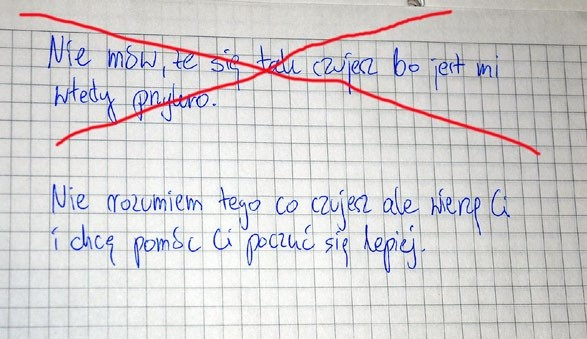 Nie mów, że się tak czujesz bo jest mi
wtedy przykro.
Nie rozumiem tego co czujesz ale wierzę Ci
i chcę pomóc Ci poczuć się lepiej.